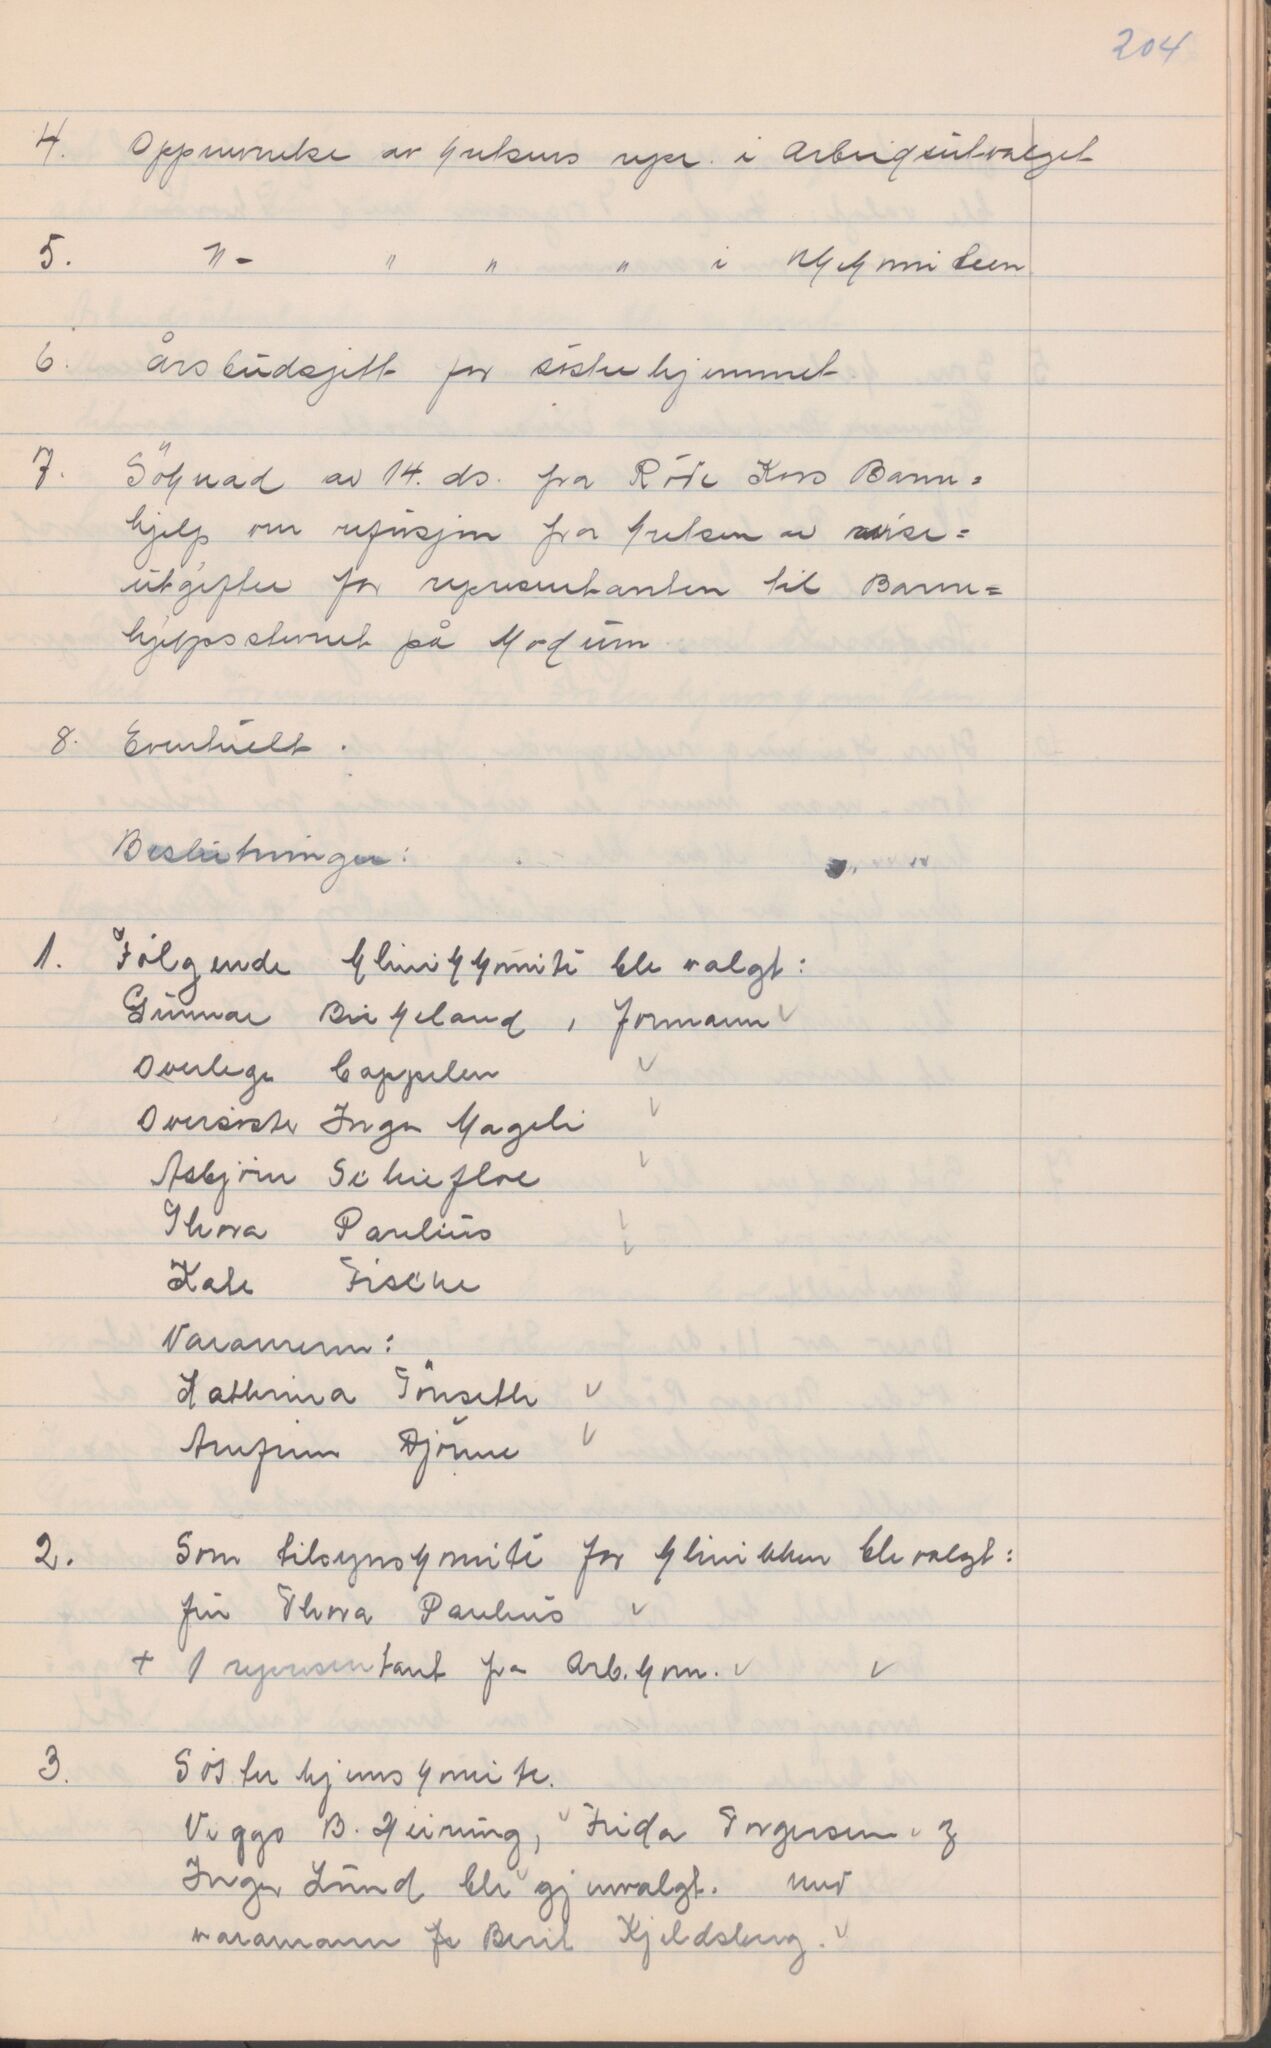 204
4. Oppnevnelse av kretsens repr. i Arbeidsutvalget
5. " - " " " i
6. Årsbudsjett for søsterhjemmet.
7. Söknad av 14. ds. fra Röde Kors Barne=
hjelp om refusjon fra kretsen av reise=
utgifter for representanten til Barne=
hjelpsstevnet på Modum
8. Eventuelt.
Beslutninger:
1. Følgende klinikkomité ble valgt:
Gunnar Birkeland, formann ✓
Overlege Cappelen ✓
Oversøster Inger Mageli ✓
Asbjørn Schiefloe ✓
Thora Paulius ✓
Kate Fische ✓
Varamenn:
Kathrina Tönseth ✓
Arnfinn Djönne ✓
2. Som tilsynskomité for klinikken ble valgt:
fru Thora Paulius ✓
+ 1 representant fra Arb.kom. ✓ ✓
3. Søsterhjemskomite.
Viggo B. Heirung, ✓ Frida Torgersen ✓ &
Inger Lund ✓ ble gjenvalgt. med
varamann fr Berit Kjeldsberg. ✓